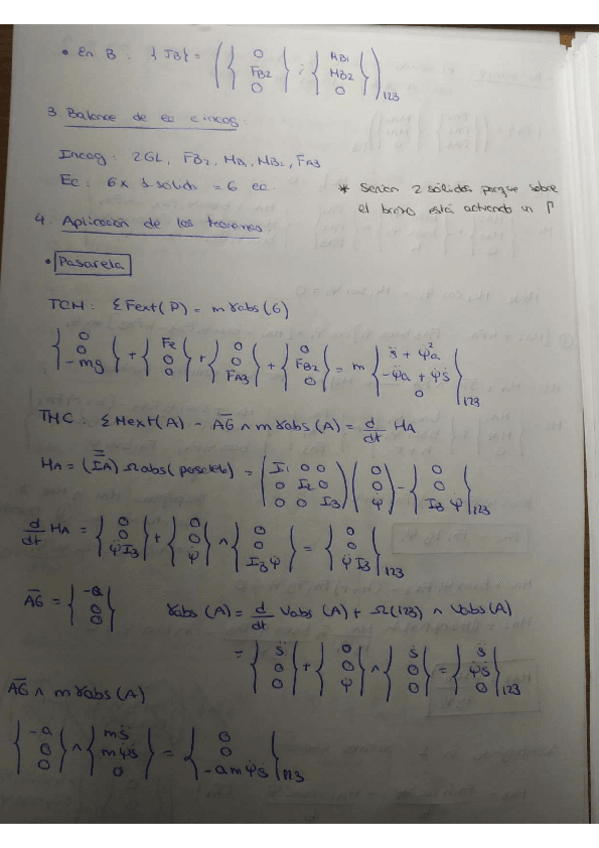 • En B : {JB} = ( { 0 FB2 0 } ; { MB1 MB2 0 } )123
3. Balance de ec e incog:
Incog : 2GL, FB2, MB1, MB2, FA3
Ec : 6 x 1 solido = 6 ec.
* Serían 2 sólidos porque sobre
el brazo está actuando un Γ
4. Aplicación de los teoremas
• Pasarela
TCM : ΣFext(P) = m γabs(G)
{ 0 0 -mg } + { Fe 0 0 } + { 0 0 FA3 } + { 0 FB2 0 } = m { s̈ + ψ̇²a -ψ̈a + ψ̇ṡ 0 }123
TMC : ΣMext(A) - AG ∧ m γabs(A) = d/dt HA
HA = (IA) Ωabs(pasarela) = ( I1 0 0 0 I2 0 0 0 I3 ) { 0 0 ψ̇ } - { 0 0 I3 ψ̇ }123
d/dt HA = { 0 0 ψ̈I3 } + { 0 0 ψ̇ } ∧ { 0 0 I3ψ̇ } = { 0 0 ψ̈I3 }123
AG = { -a 0 0 }
γabs(A) = d/dt Vabs(A) + Ω(123) ∧ Vabs(A)
= { s̈ 0 0 } + { 0 0 ψ̇ } ∧ { ṡ 0 0 } = { s̈ ψ̇ṡ 0 }123
AG ∧ m γabs(A)
{ -a 0 0 } ∧ { ms̈ mψ̇ṡ 0 } = { 0 0 -amψ̇ṡ }123